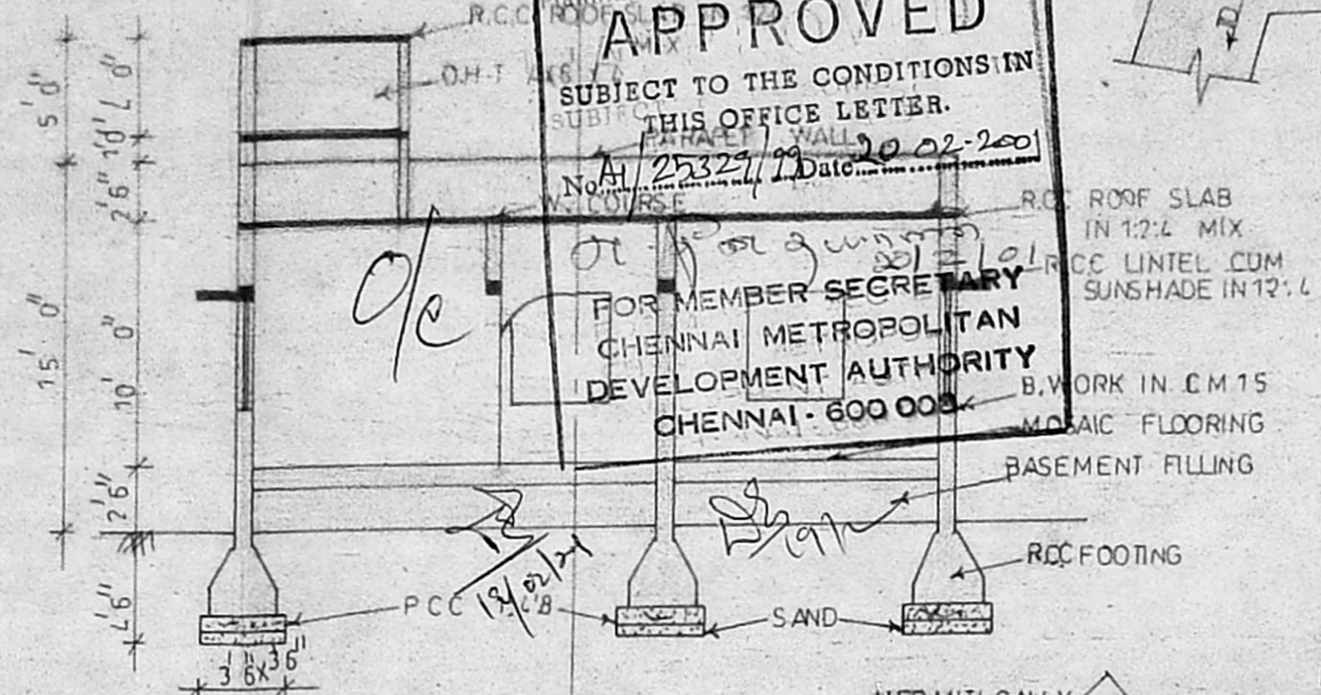 R.C.C ROOF SLAB
MIX
O.H.T
APPROVED
SUBJECT TO THE CONDITIONS IN
THIS OFFICE LETTER.
No. A1/25329/99 Date 20-02-2001
SUBJECT
PARAPET WALL
W. COURSE
R.C.C ROOF SLAB
IN 1:2:4 MIX
20/2/01
R.C.C LINTEL CUM
SUNSHADE IN 1:2:4
O/C
FOR MEMBER SECRETARY
CHENNAI METROPOLITAN
DEVELOPMENT AUTHORITY
CHENNAI - 600 008
B.WORK IN C M 1 5
MOSAIC FLOORING
BASEMENT FILLING
R.C.C FOOTING
P C C
SAND
5' 0"
15' 0"
1' 0"
2' 6"
10' 0"
2' 6"
4' 6"
3' 6" x 3' 6"